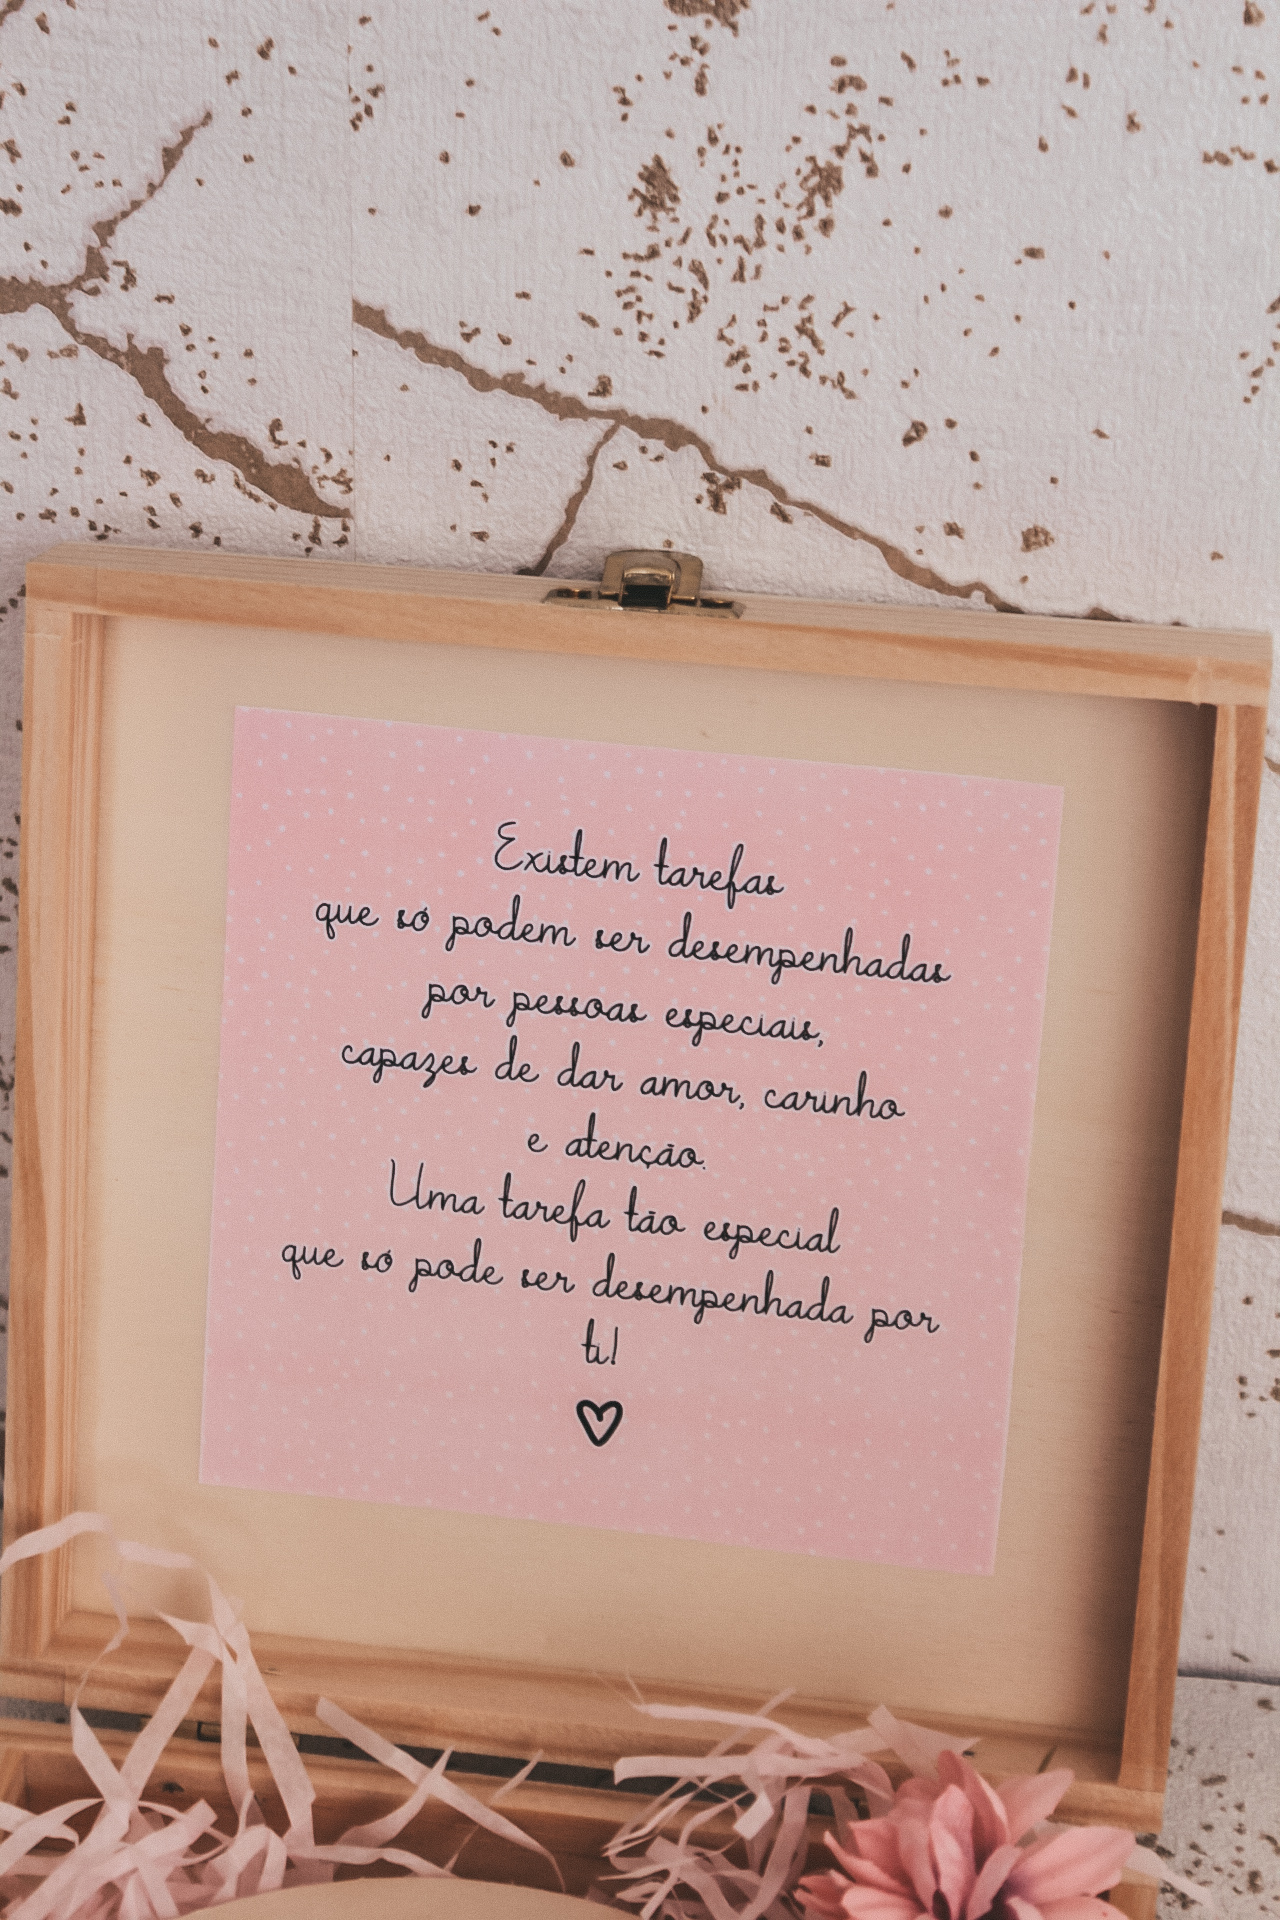 Existem tarefas
que só podem ser desempenhadas
por pessoas especiais,
capazes de dar amor, carinho
e atenção.
Uma tarefa tão especial
que só pode ser desempenhada por
ti!